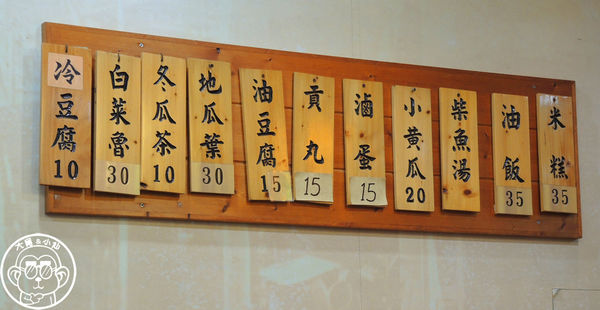 米糕 35
油飯 35
柴魚湯
小黃瓜 20
滷蛋 15
貢丸 15
油豆腐 15
地瓜葉 30
冬瓜茶 10
白菜魯 30
冷豆腐 10
大胃&小仙